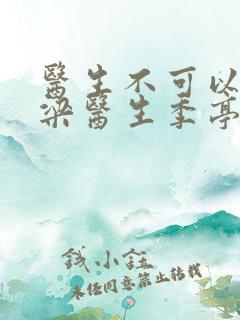 醫生不可以
梁醫生季亭
錢小鈺
未經同意禁止轉載